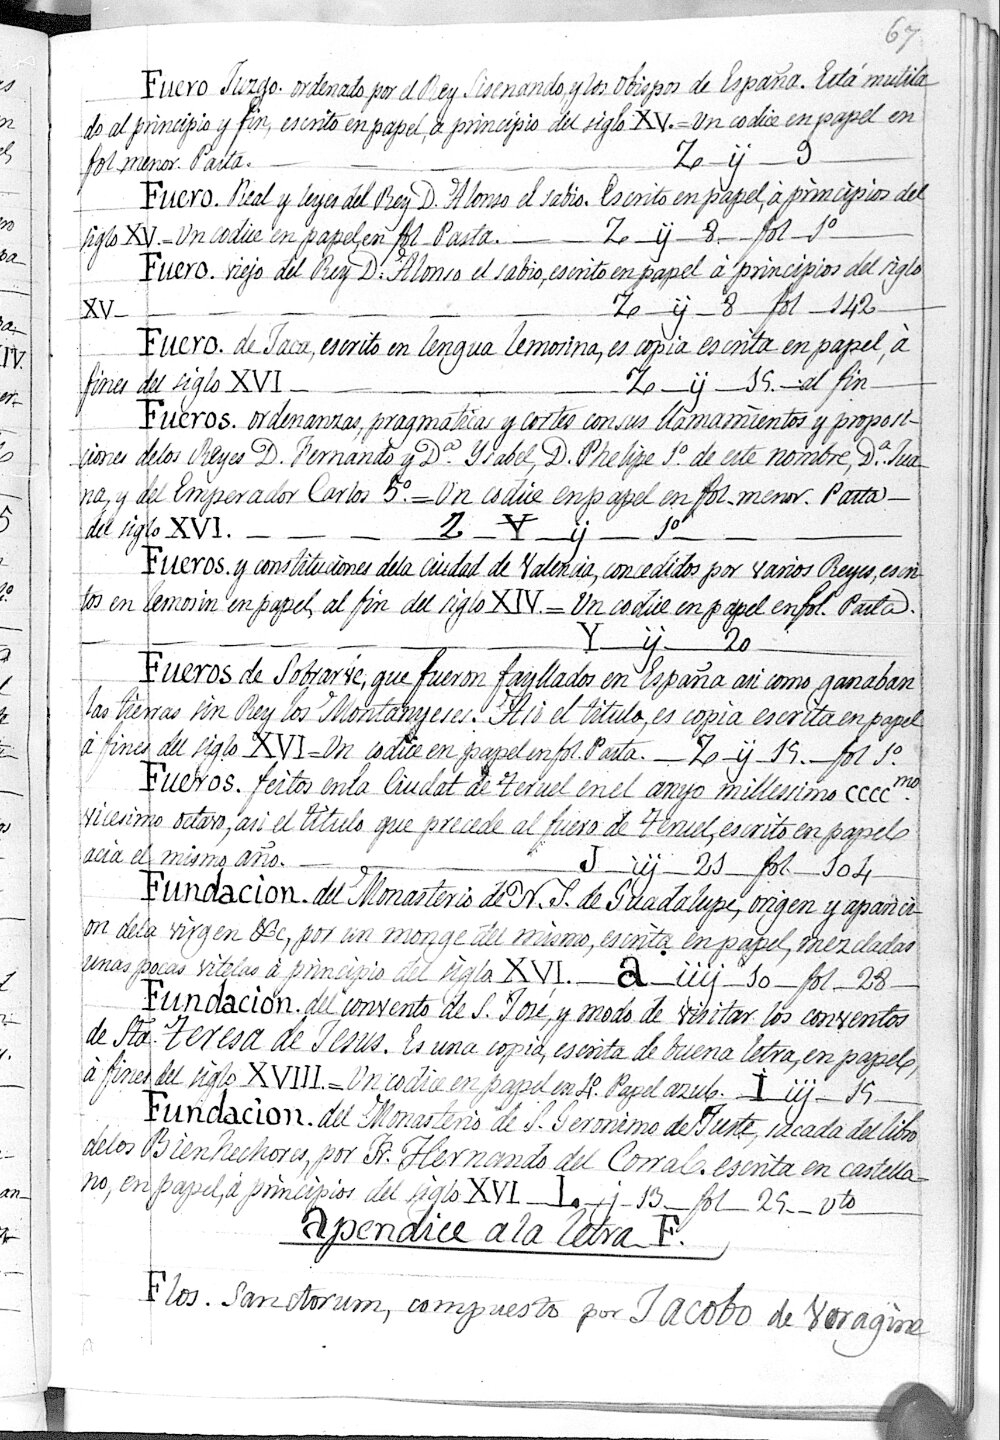 67
Fuero Juzgo. ordenato por el Rey Sisenando, y los obispos de España. Está mutila
do al principio y fin, escrito en papel, à principio del siglo XV.= Un codice en papel en
fol. menor. Pasta. — Z — ij — 9
Fuero. Real y leyes del Rey D. Alonso el sabio. Escrito en papel, à principios del
siglo XV.= Un codice en papel, en fol. Pasta. — Z — ij — 8 — fol — 1º
Fuero. viejo del Rey D. Alonso el sabio, escrito en papel à principios del siglo
XV — Z — ij — 8 — fol — 142
Fuero. de Jaca, escrito en lengua lemosina, es copia escrita en papel, à
fines del siglo XVI — Z — ij — 15. — al fin
Fueros. ordenanzas, pragmaticas y cortes con sus llamamientos y proposi-
ciones delos Reyes D. Fernando y Dª. Ysabel, D. Phelipe 1º de este nombre, Dª. Jua
na, y del Emperador Carlos 5º = Un codice en papel en fol. menor. Pasta —
del siglo XVI. — Z — Y — ij — 1º
Fueros. y constituciones dela ciudad de Valencia, concedidos por varios Reyes, escri-
tos en lemosin en papel, al fin del siglo XIV. = Un codice en papel en fol. Pasta.
Y — ij — 20
Fueros de Sobrarve, que fueron fayllados en España asi como ganaban
las tierras sin Rey los Montanyeses. Asi el titulo, es copia escrita en papel
à fines del siglo XVI = Un codice en papel en fol. Pasta. — Z — ij — 15. — fol 1º.
Fueros. feitos en la Ciudat de Teruel en el anyo millessimo CCCC mo.
vicesimo octavo, asi el titulo que precede al fuero de Teruel, escrito en papel
acia el mismo año. — J — iij — 21 — fol. — 104
Fundacion. del Monasterio de N. S. de Guadalupe, origen y aparici-
on dela virgen &c, por un monge del mismo, escrita en papel, mezcladas
unas pocas vitelas à principio del siglo XVI. — a — iiij — 10 — fol — 28
Fundacion. del convento de S. José, y modo de visitar los conventos
de Sta. Teresa de Jesus. Es una copia, escrita de buena letra, en papel,
à fines del siglo XVIII. = Un codice en papel en 4º. Papel azul. — I — iij — 15
Fundacion. del Monasterio de S. Geronimo de Juste, sacada del libro
delos Bienhechores, por Fr. Hernando del Corral. escrita en castella-
no, en papel, à principios del siglo XVI — L — j — 13 — fol — 25 — vto
Apendice a la letra F.
Flos. Sanctorum, compuesto por Jacobo de Voragine